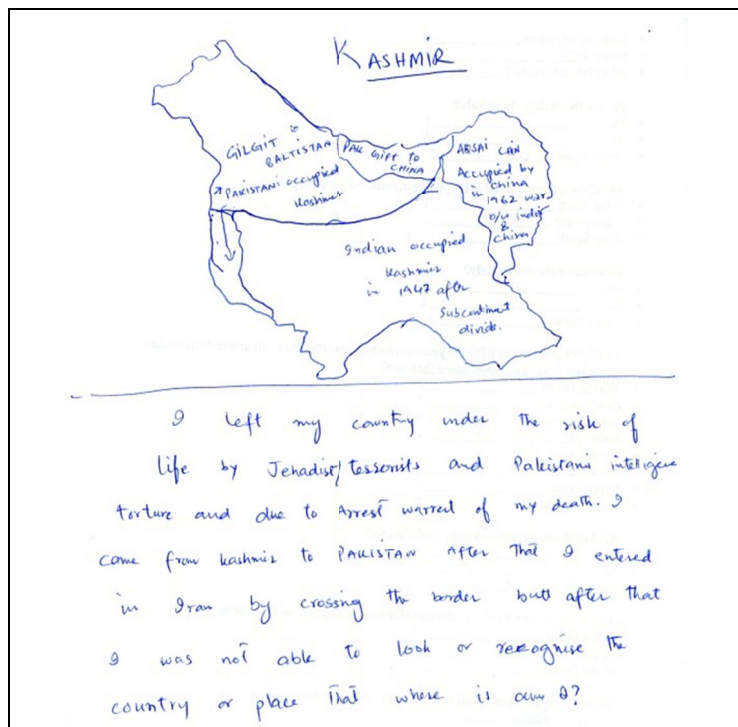 KASHMIR
GILGIT &
BALTISTAN
PAKISTANI occupied
Kashmir
PAK Gift to
CHINA
AKSAI CAN
Accupied by
China
in 1962 war
b/w india
&
China
Indian occupied
Kashmir
in 1947 after
Subcontinent
divide.
I left my country under the risk of
life by Jehadist/terrorists and Pakistani
torture and due to Arrest warred of my death. I
came from Kashmir to PAKISTAN After That I entered
in Iran by crossing the border butt after that
I was not able to look or recognise the
country or place That where is am I?